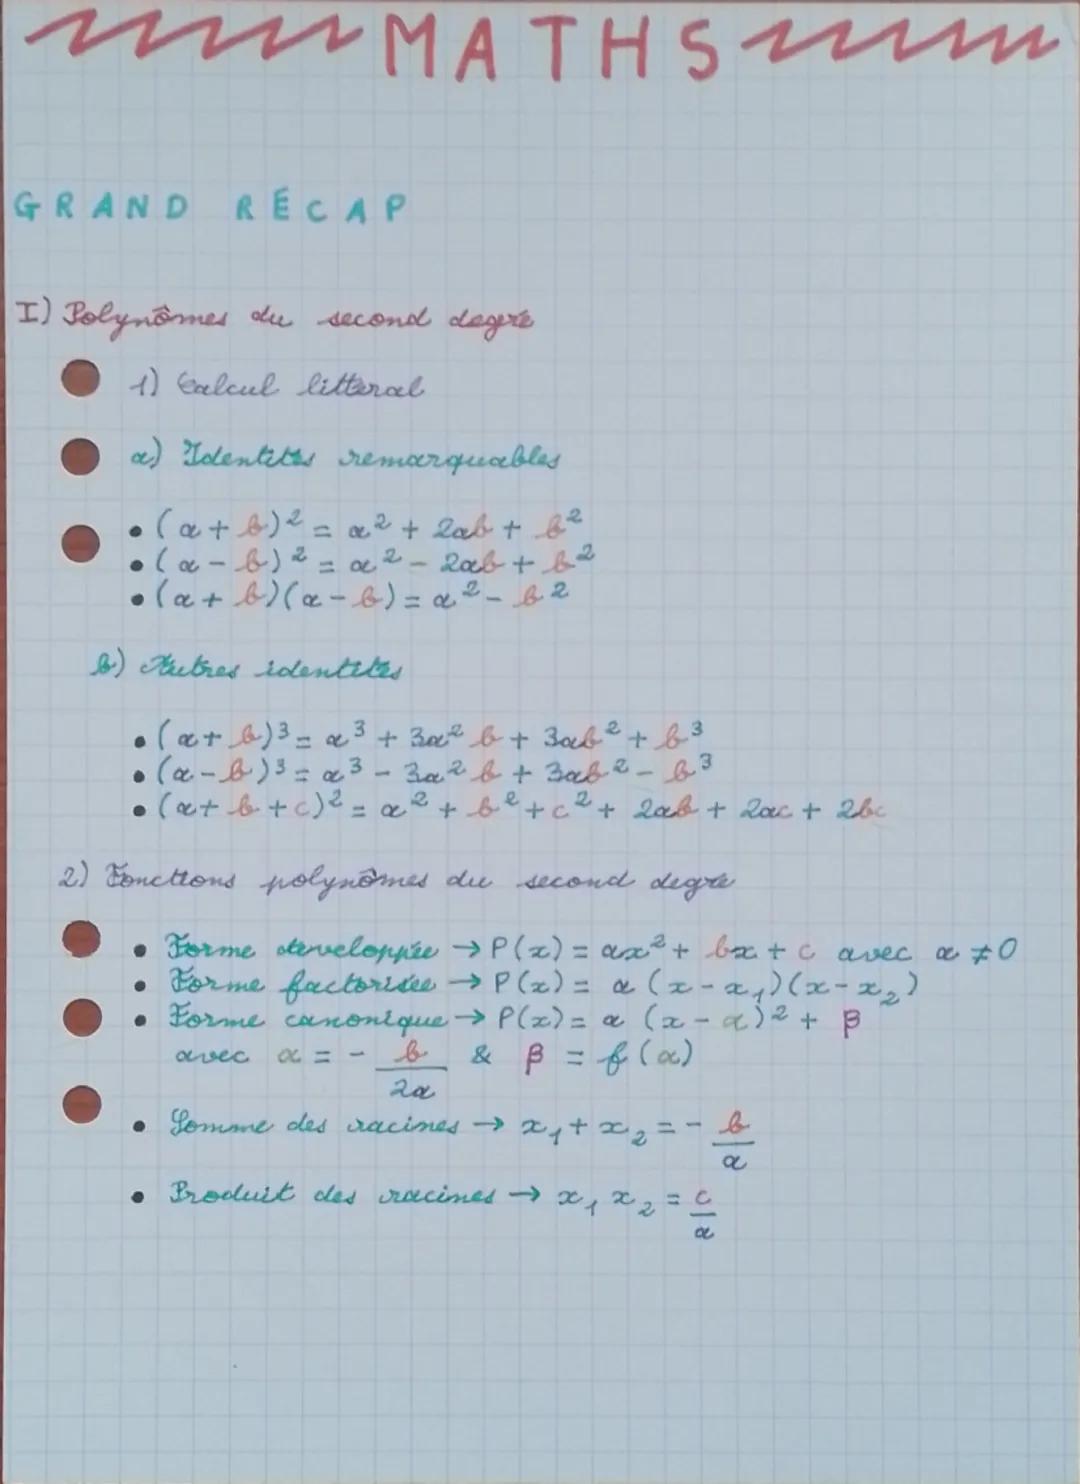 MATHS
GRAND RÉCAP
I) Polynômes du second degré
1) Calcul littéral
a) Identités remarquables
• (a + b)² = a² + 2ab + b²
• (a - b)² = a² - 2ab + b²
• (a + b)(a - b) = a² - b²
b) Autres identités
• (a + b)³ = a³ + 3a² b + 3ab² + b³
• (a - b)³ = a³ - 3a² b + 3ab² - b³
• (a + b + c)² = a² + b² + c² + 2ab + 2ac + 2bc
2) Fonctions polynômes du second degré
• Forme développée → P(x) = ax² + bx + c avec a ≠ 0
• Forme factorisée → P(x) = a (x - x₁)(x - x₂)
• Forme canonique → P(x) = a (x - α)² + β
avec α = - b/2a & β = f(α)
• Somme des racines → x₁ + x₂ = - b/a
• Produit des racines → x₁ x₂ = c/a